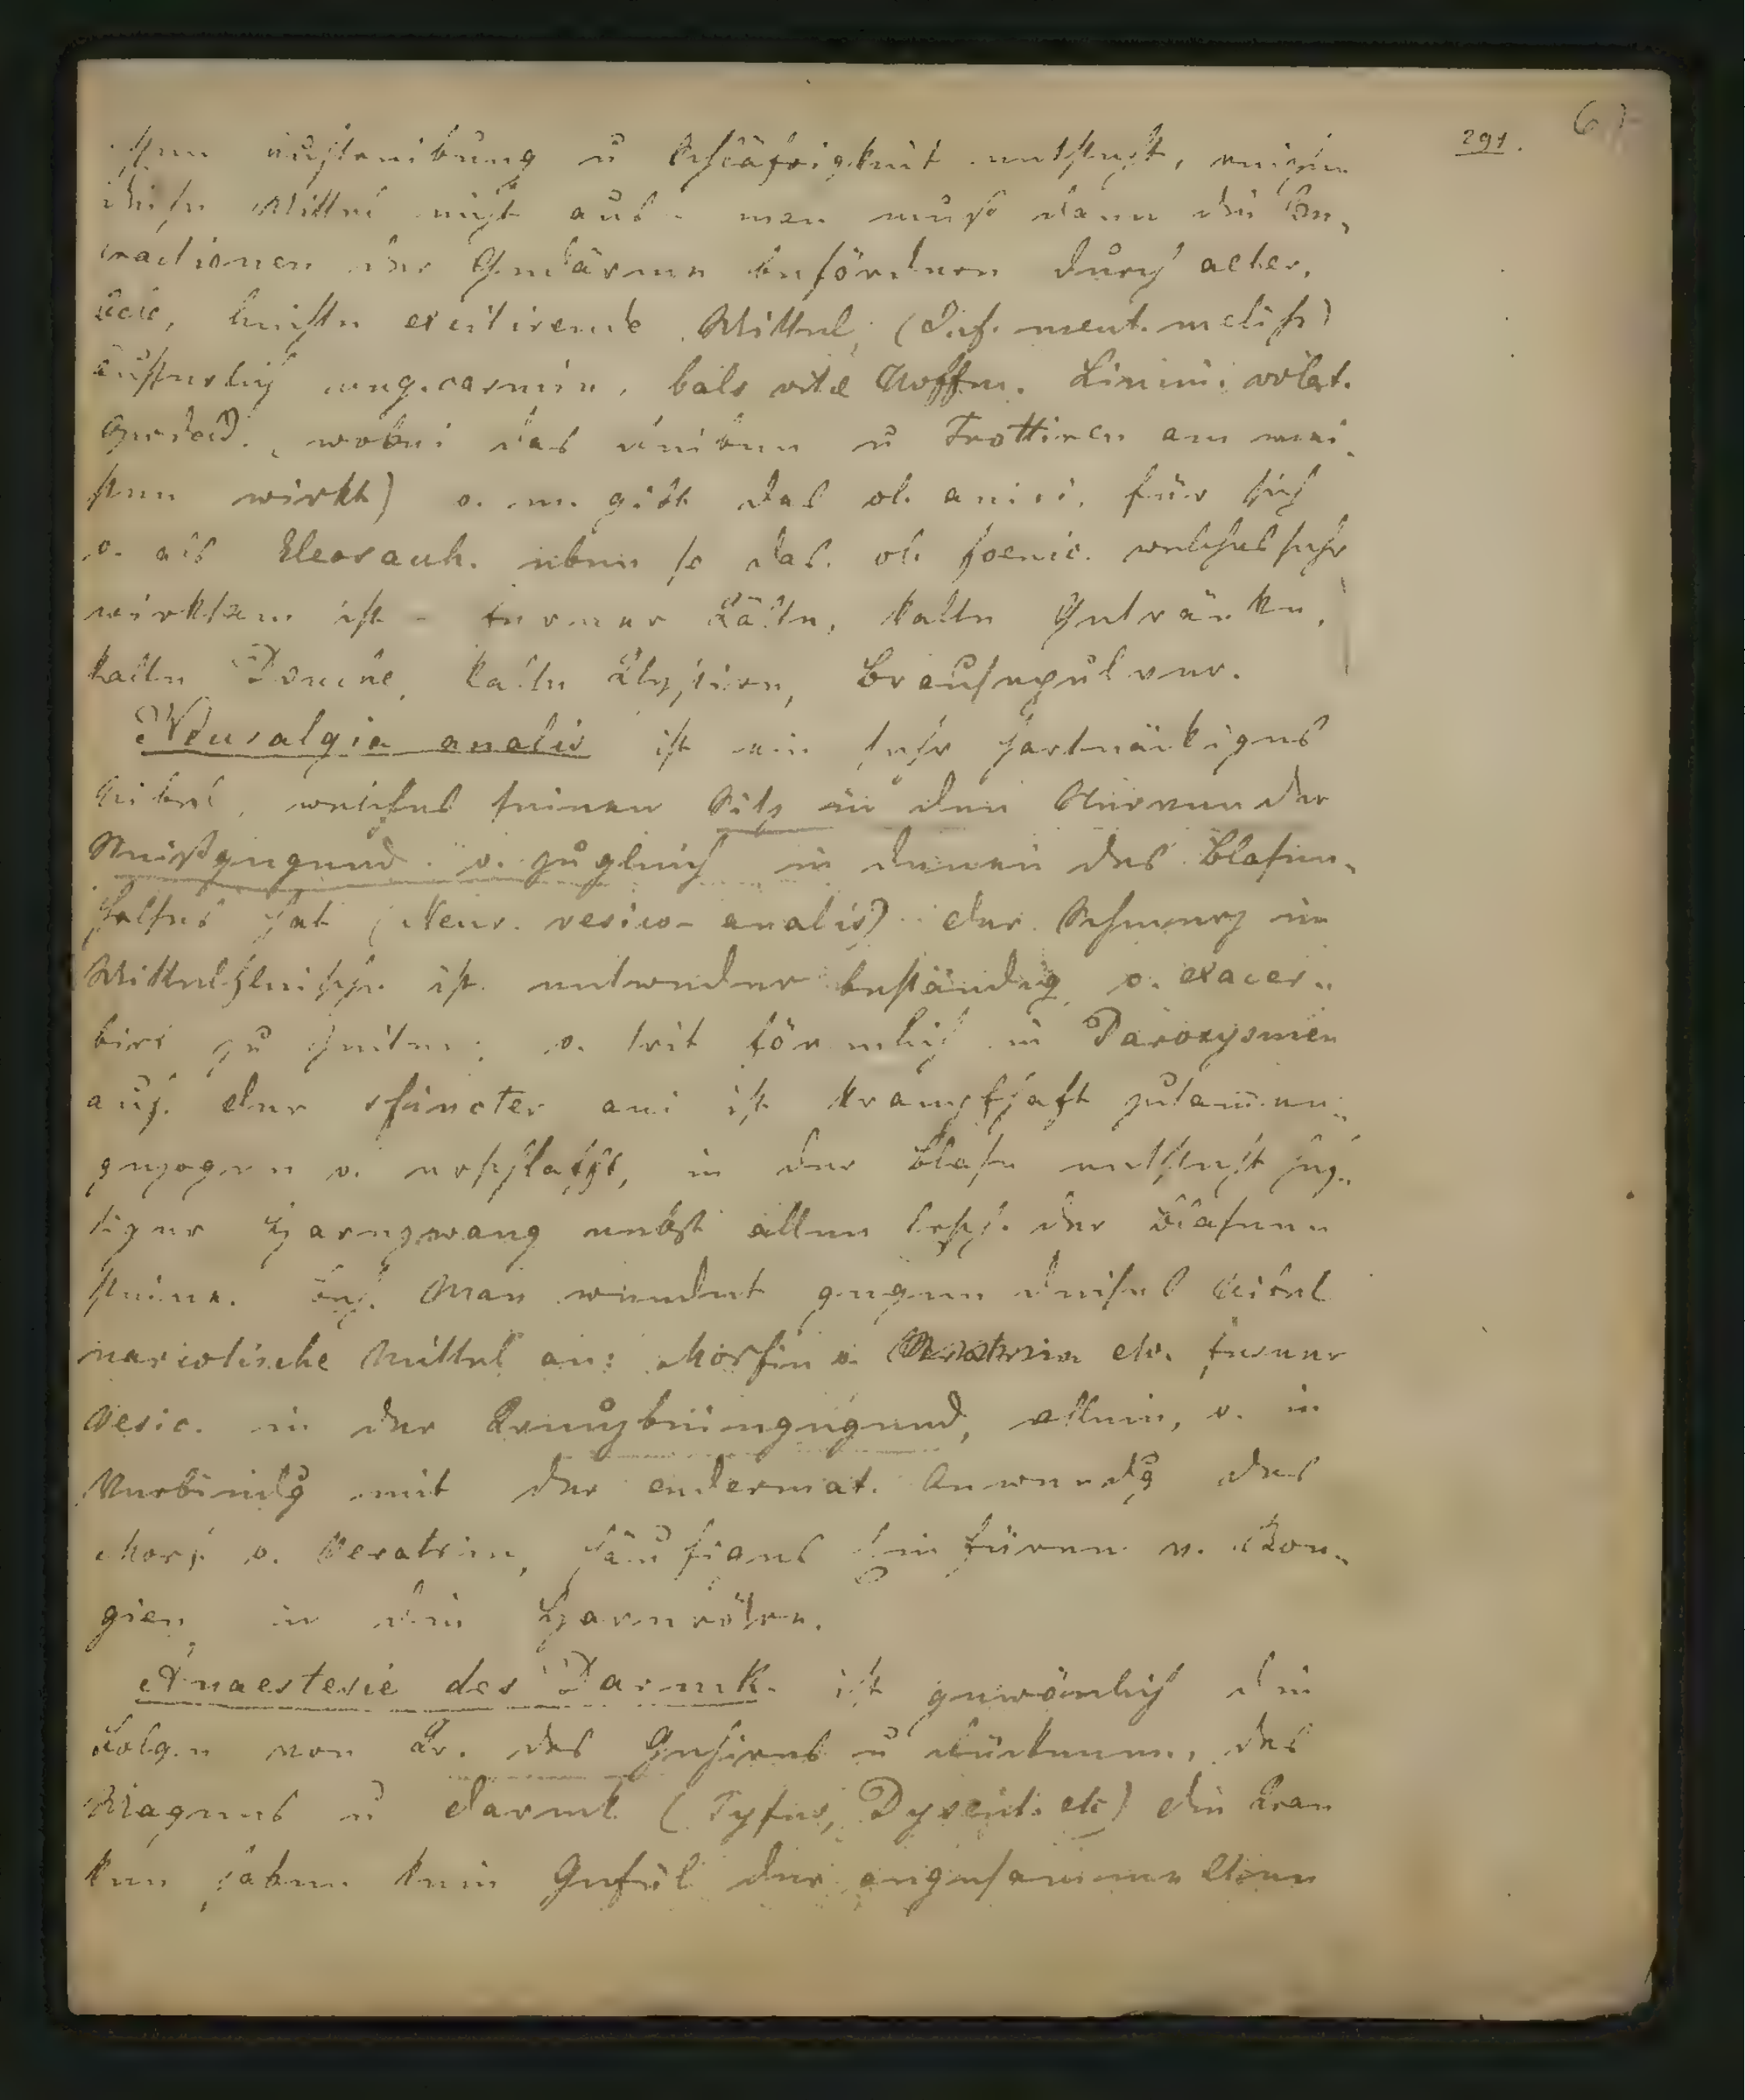 291.
sten auftreibung u Schläfrigkeit entsteht, reichen
diese Mittel nicht aus - man muß dann die Con,
tractionen der Gedärme befördern durch aeter.
Oele, leichte excitirende Mittel, (Inf. ment. meliss)
äußerlich ung. carmin, bals vitæ Hoffm. Linim. volat.
, wobei das reiben u Frottiren am mei-
sten wirkt) o. m. gibt das ol. anisi. für sich
o. als Eleosach. eben so das ol. foenic. welches sehr
wirksam ist - ferner Kälte, kalte Getränke,
kalte Douche, kalte Klystiere, Brausepulver.
Neuralgia analis ist ein sehr hartnäckiges
Uibel, welches seinen Sitz in den Nerven der
Steißgegend o. zugleich in denen des Blasen-
halses hat (Neur. vesico-analis) der Schmerz im
Mittelfleische ist entweder beständig o. exacer-
birt zu Zeiten; o. trit förmlich in Paroxysmen
auf. der sfincter ani ist krampfhaft zusammen-
gezogen o. erschlafft, in der Blase entsteht hef-
tiger Harnzwang nebst allen Ersch. der Blasen-
steine. Beh. Man wendet gegen dieses Uibel
narcotische Mittel an: Morfin o. Veratrin etc. ferner
Vesic. in der Kreuzbeingegend, allein, o. in
Verbindg mit der endermat. Anwendg des
Morf. o. Veratrin, häufiges Einfüren v. Bou-
gien in die Harnröhre.
Anaestesie des Darmk. ist gewönlich die
Folgen von Kr. des Gehirns u Rückenm., des
Magens u Darmk. (Tyfus, Dysent. etc) die Kran
ken haben kein Gefül der angesammelten